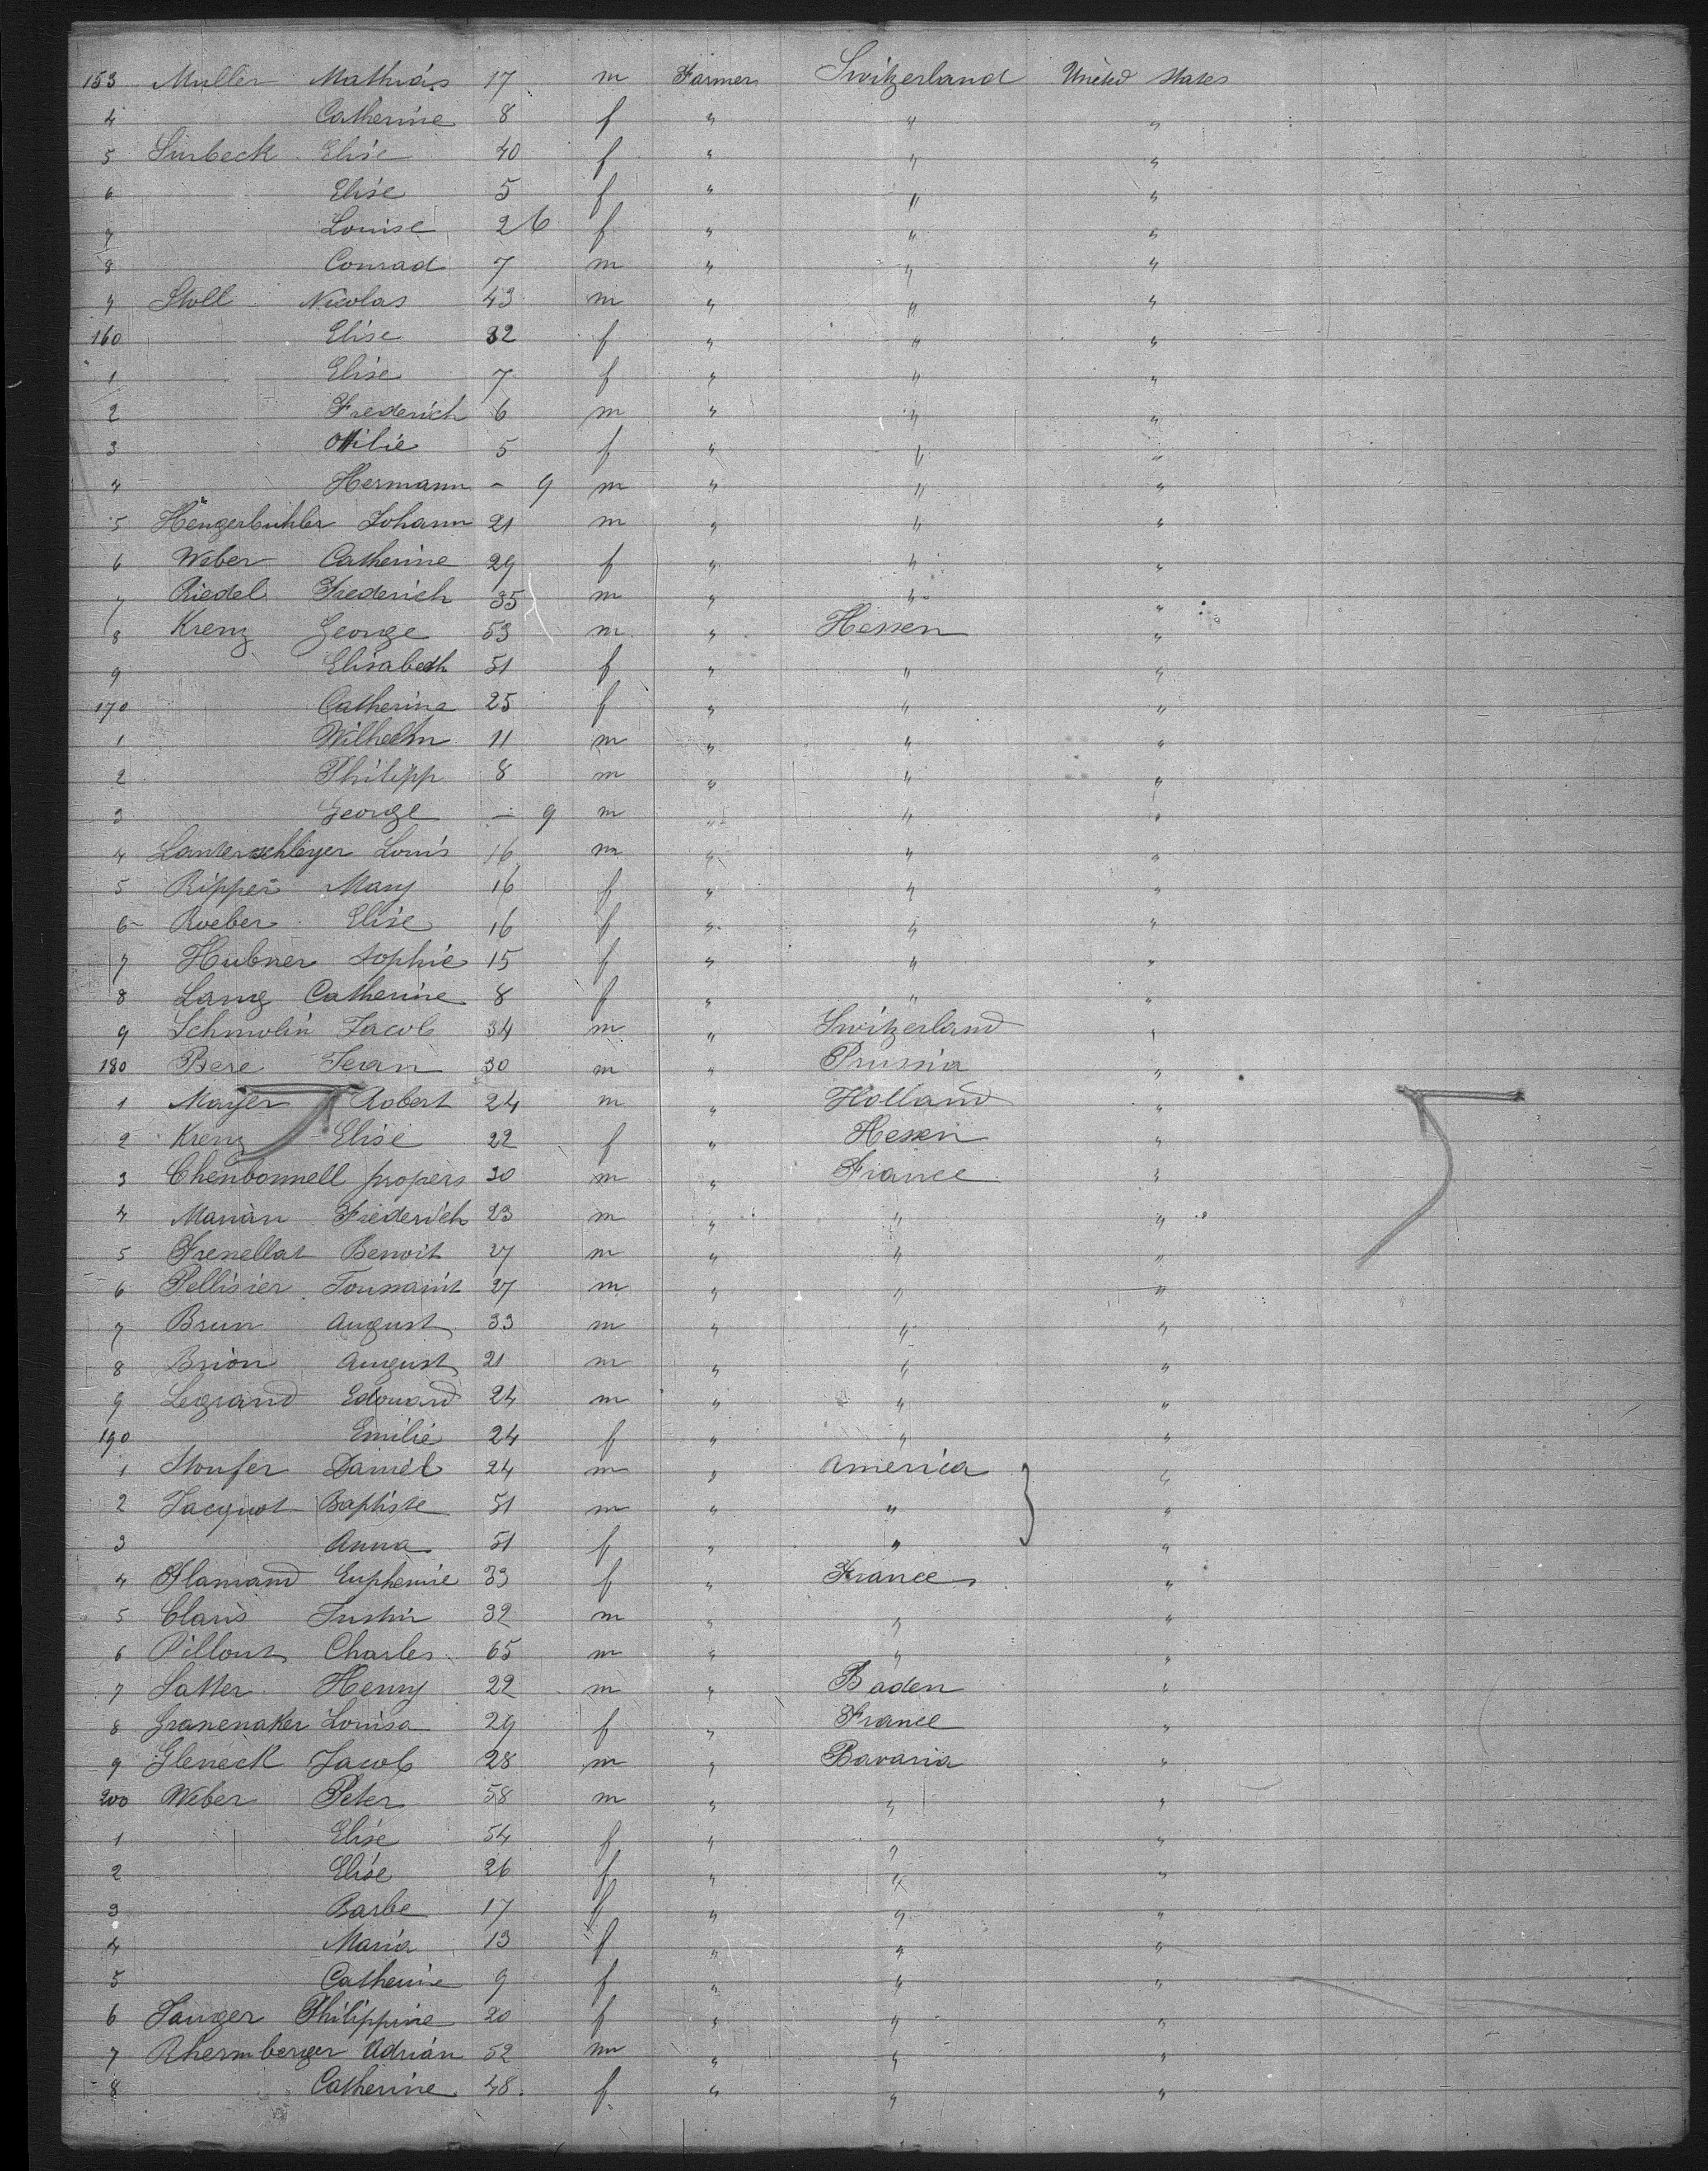 153 Muller Mathias 17 m Farmer Switzerland United States
4 Catherine 8 f " " "
5 Surbeck Elise 40 f " " "
6 Elise 5 f " " "
7 Louise 2 6 f " " "
8 Conrad 7 m " " "
9 Stoll Nicolas 43 m " " "
160 Elise 32 f " " "
1 Elise 7 f " " "
2 Frederich 6 m " " "
3 Ottilie 5 f " " "
4 Hermann - 9 m " " "
5 Hengerbuhler Johann 21 m " " "
6 Weber Catherine 29 f " " "
7 Riedel Frederich 35 m " " "
8 Krenz George 53 m " Hessen "
9 Elisabeth 51 f " " "
170 Catherine 25 f " " "
1 Wilhelm 11 m " " "
2 Philipp 8 m " " "
3 George - 9 m " " "
4 Lauterschleyer Louis 16 m " " "
5 Ripper Mary 16 f " " "
6 Roeber Elise 16 f " " "
7 Hubner Sophie 15 f " " "
8 Lang Catherine 8 f " " "
9 Schmolin Jacob 34 m " Switzerland "
180 Bere Jean 30 m " Prussia "
1 Mayer Robert 24 m " Holland "
2 Krenz Elise 22 f " Hessen "
3 Chenbonnell propers 30 m " France "
4 Marian Frederich 23 m " " "
5 Frenellat Benoit 27 m " " "
6 Pellisier Toussaint 27 m " " "
7 Brun August 33 m " " "
8 Brion August 21 m " " "
9 Legrand Edouard 24 m " " "
190 Emilie 24 f " " "
1 Stoufer Daniel 24 m " America "
2 Jacquot Baptiste 51 m " " "
3 Anna 51 f " " "
4 Flamand Euphemie 33 f " France "
5 Claris Justin 32 m " " "
6 Pillout Charles 65 m " " "
7 Satter Henry 22 m " Baden "
8 Granenaker Louisa 29 f " France "
9 Gleneck Jacob 28 m " Bavaria "
200 Weber Peter 58 m " " "
1 Elise 54 f " " "
2 Elise 26 f " " "
3 Barbe 17 f " " "
4 Maria 13 f " " "
5 Catherine 9 f " " "
6 Sauger Philippine 20 f " " "
7 Rhermberger Adrian 52 m " " "
8 Catherine 48 f " " "